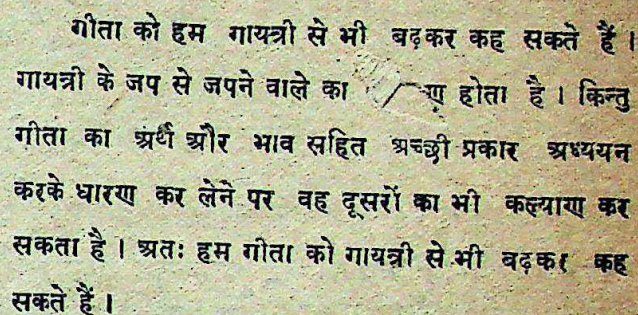 गीता को हम गायत्री से भी बढ़कर कह सकते हैं ।
गायत्री के जप से जपने वाले का होता है । किन्तु
गीता का अर्थ और भाव सहित अच्छी प्रकार अध्ययन
करके धारण कर लेने पर वह दूसरों का भी कल्याण कर
सकता है । अतः हम गीता को गायत्री से भी बढ़कर कह
सकते हैं ।